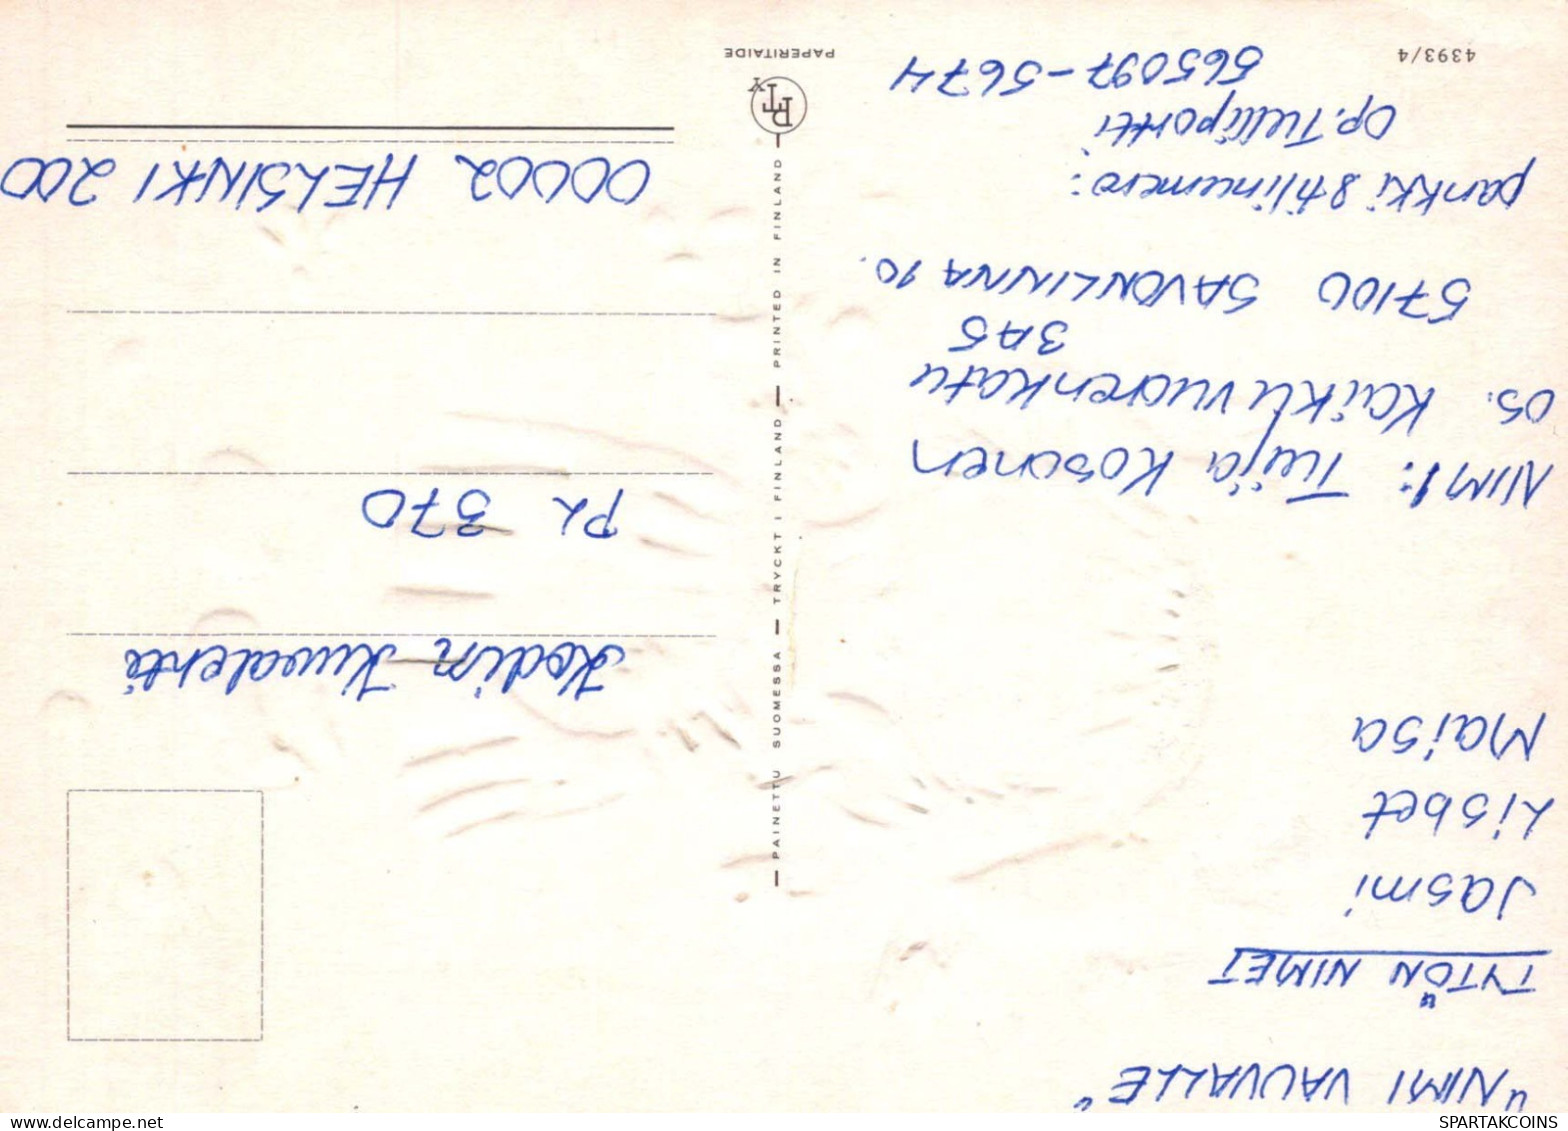 "NIMI VAUVALLE"
TYTÖN NIMET
Jasmi
Lisbet
Maisa
NIMI: Tuija Kosonen
OS. Kaikuvuorenkatu
3A5
57100 SAVONLINNA 10.
pankki & tilinumero:
OP. Tulliportti
565097-5674
4393/4
— PAINETTU SUOMESSA — TRYCKT I FINLAND — PRINTED IN FINLAND —
PAPERITAIDE
Kodin Kuvalehti
PL 370
00002 HELSINKI 200
SPARTAKCOINS